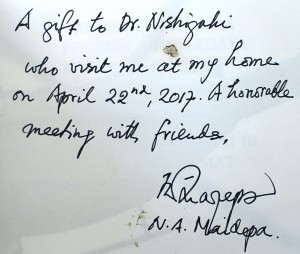 A gift to Dr. Nishizaki
who visit me at my home
on April 22nd, 2017. A honorable
meeting with friends,
N.A. Maldepa.